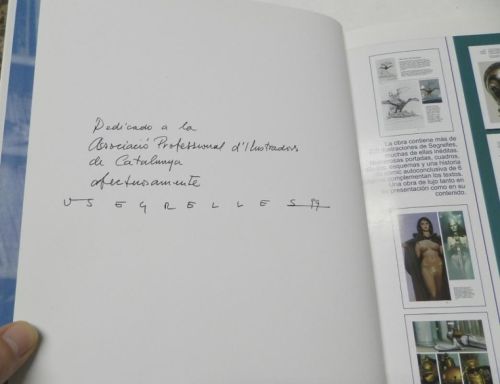 Dedicado a la
Associació Professional d'Ilustradors
de Catalunya
afectuosamente
V SEGRELLES 99
La obra contiene más de
ilustraciones de Segrelles,
muchas de ellas inéditas.
portadas, cuadros,
esquemas y una historia
de comic autoconclusiva de 5
complementan los textos.
Una obra de lujo tanto en
su presentación como en su
contenido.